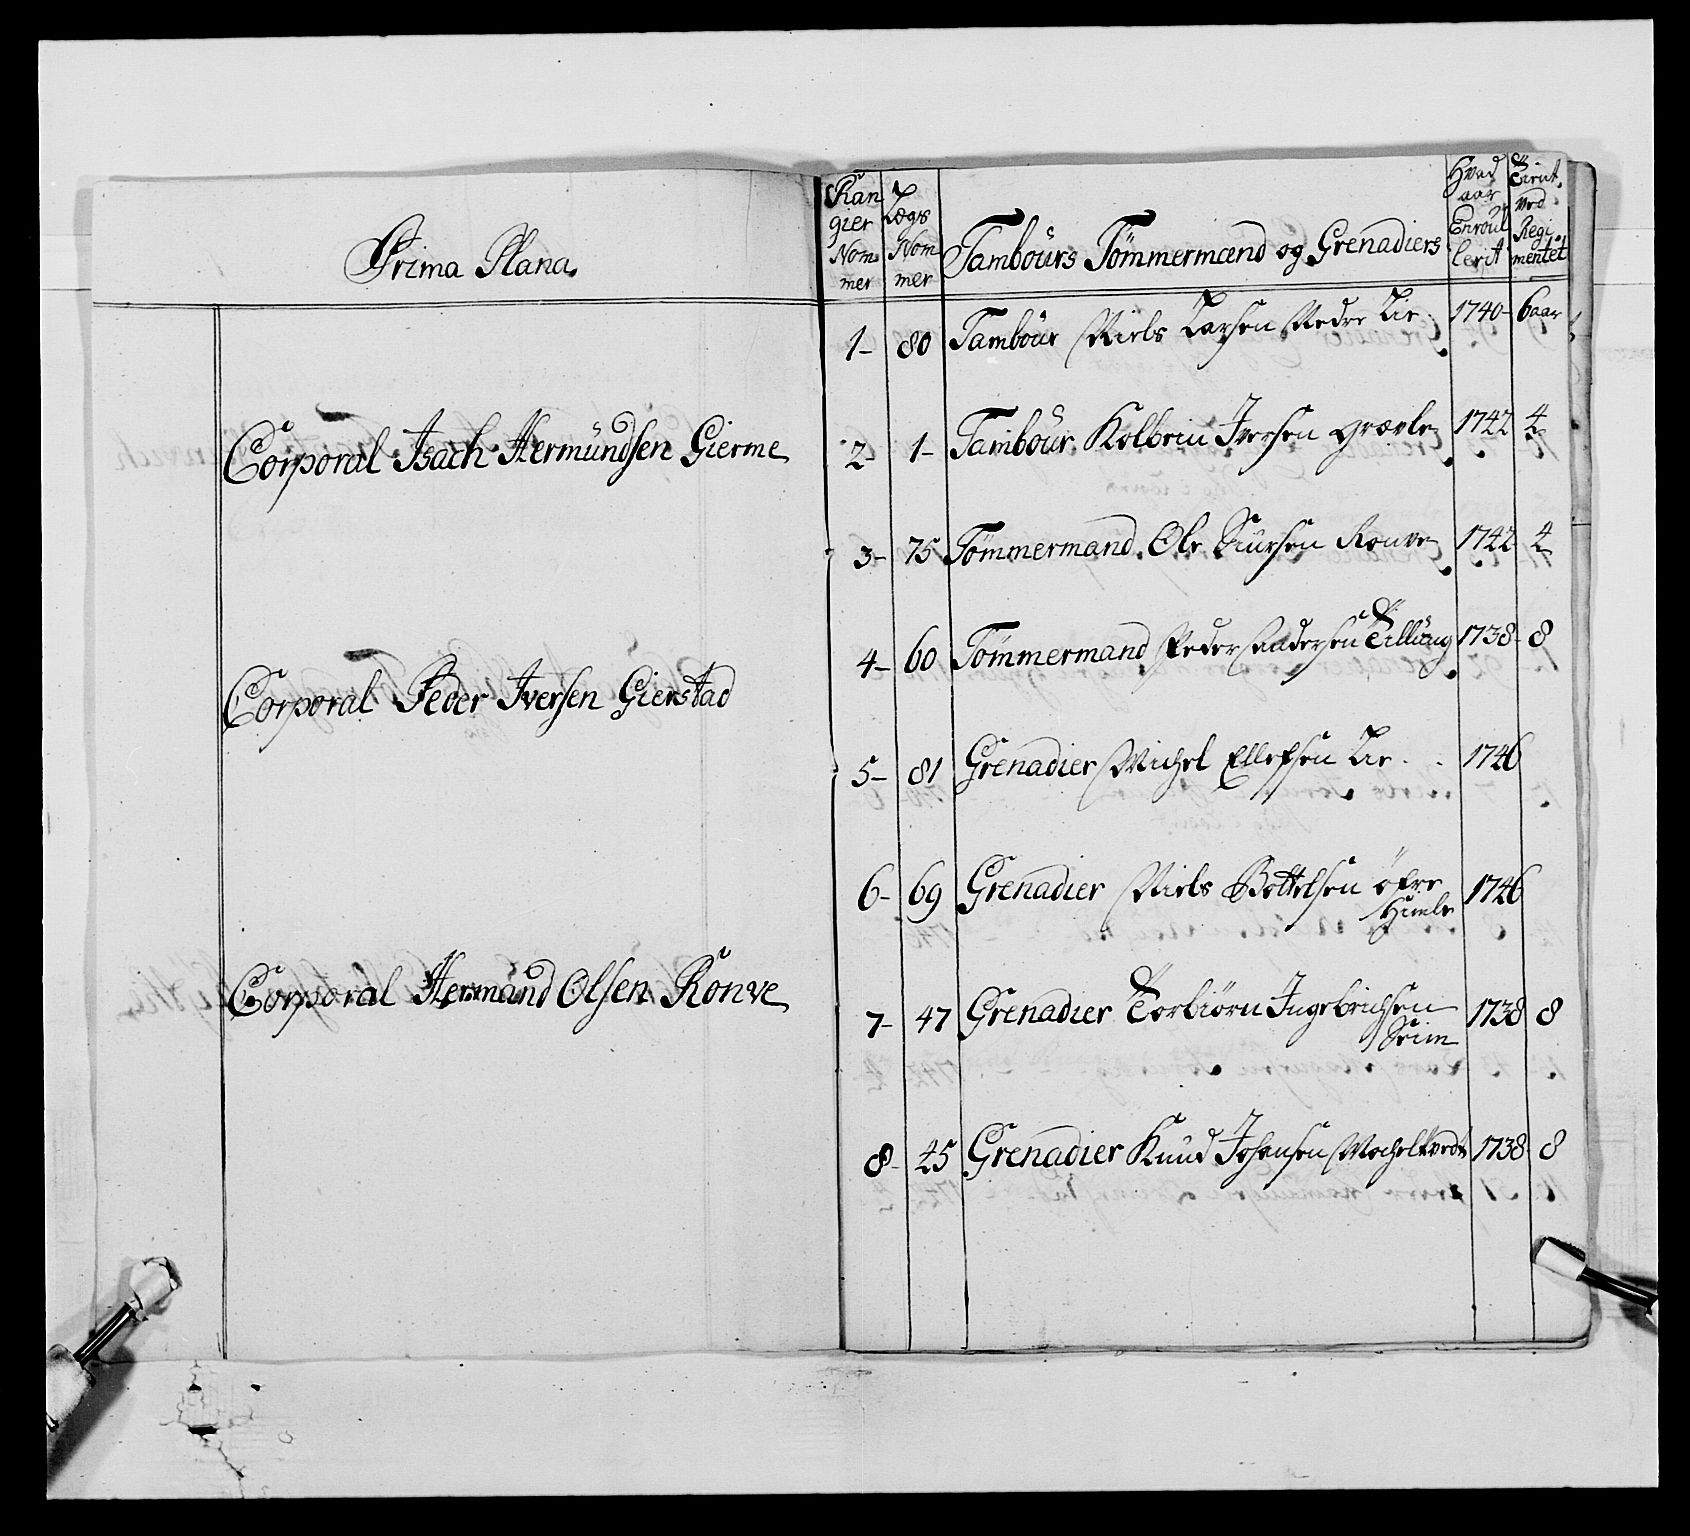 Prima Plana.
Corporal Isach Hermündsen Gierme
Corporal Peder Iversen Gierstad
Corporal Hermand Olsen Rönve
Ran
gier
Nom
mer
Lægs
Nom
mer
Tamboürs Tömmermænd og Grenadiers
Hvad
aar
Enroul
lerit
Tient
ved
Regi
mentet
1- 80 Tamboür Niels Larsen Nedre Lie. 1740- 6 aar
2- 1- Tamboür Kolbein Iversen Grævle 1742 4
3- 75 Tömmermand Ole Siursen Rönve 1742 4
4- 60 Tömmermand Peder Andersen Tillüng 1738- 8
5- 81 Grenadier Michel Ellefsen Lie. 1746
6- 69 Grenadier Niels Bottelsen öfre 1746
Himle
7- 47 Grenadier Torbiörn Ingebrichsen 1738 8
Seim
8- 45 Grenadier Knud Johansen 1738 8